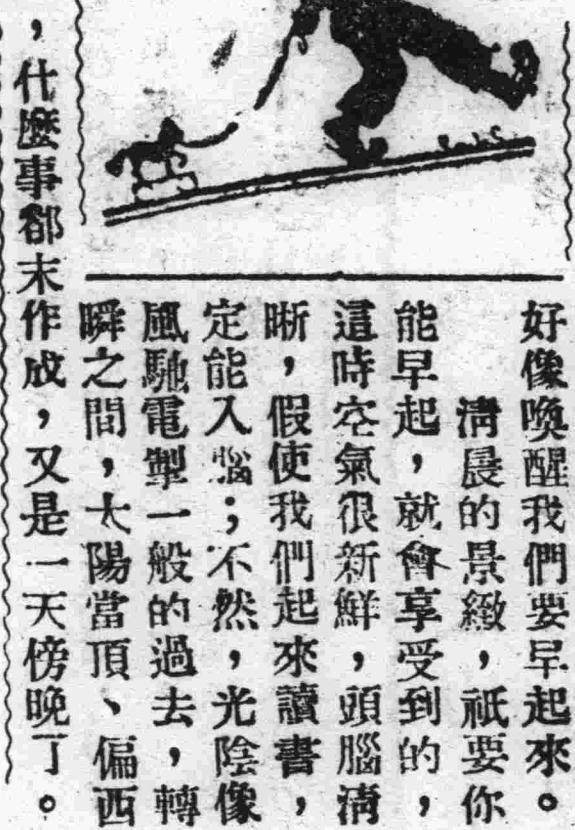 好像喚醒我們要早起來。
清晨的景緻，祇要你
能早起，就會享受到的，
這時空氣很新鮮，頭腦清
晰，假使我們起來讀書，
定能入腦；不然，光陰像
風馳電掣一般的過去，轉
瞬之間，太陽當頂、偏西
，什麼事都末作成，又是一天傍晚了。